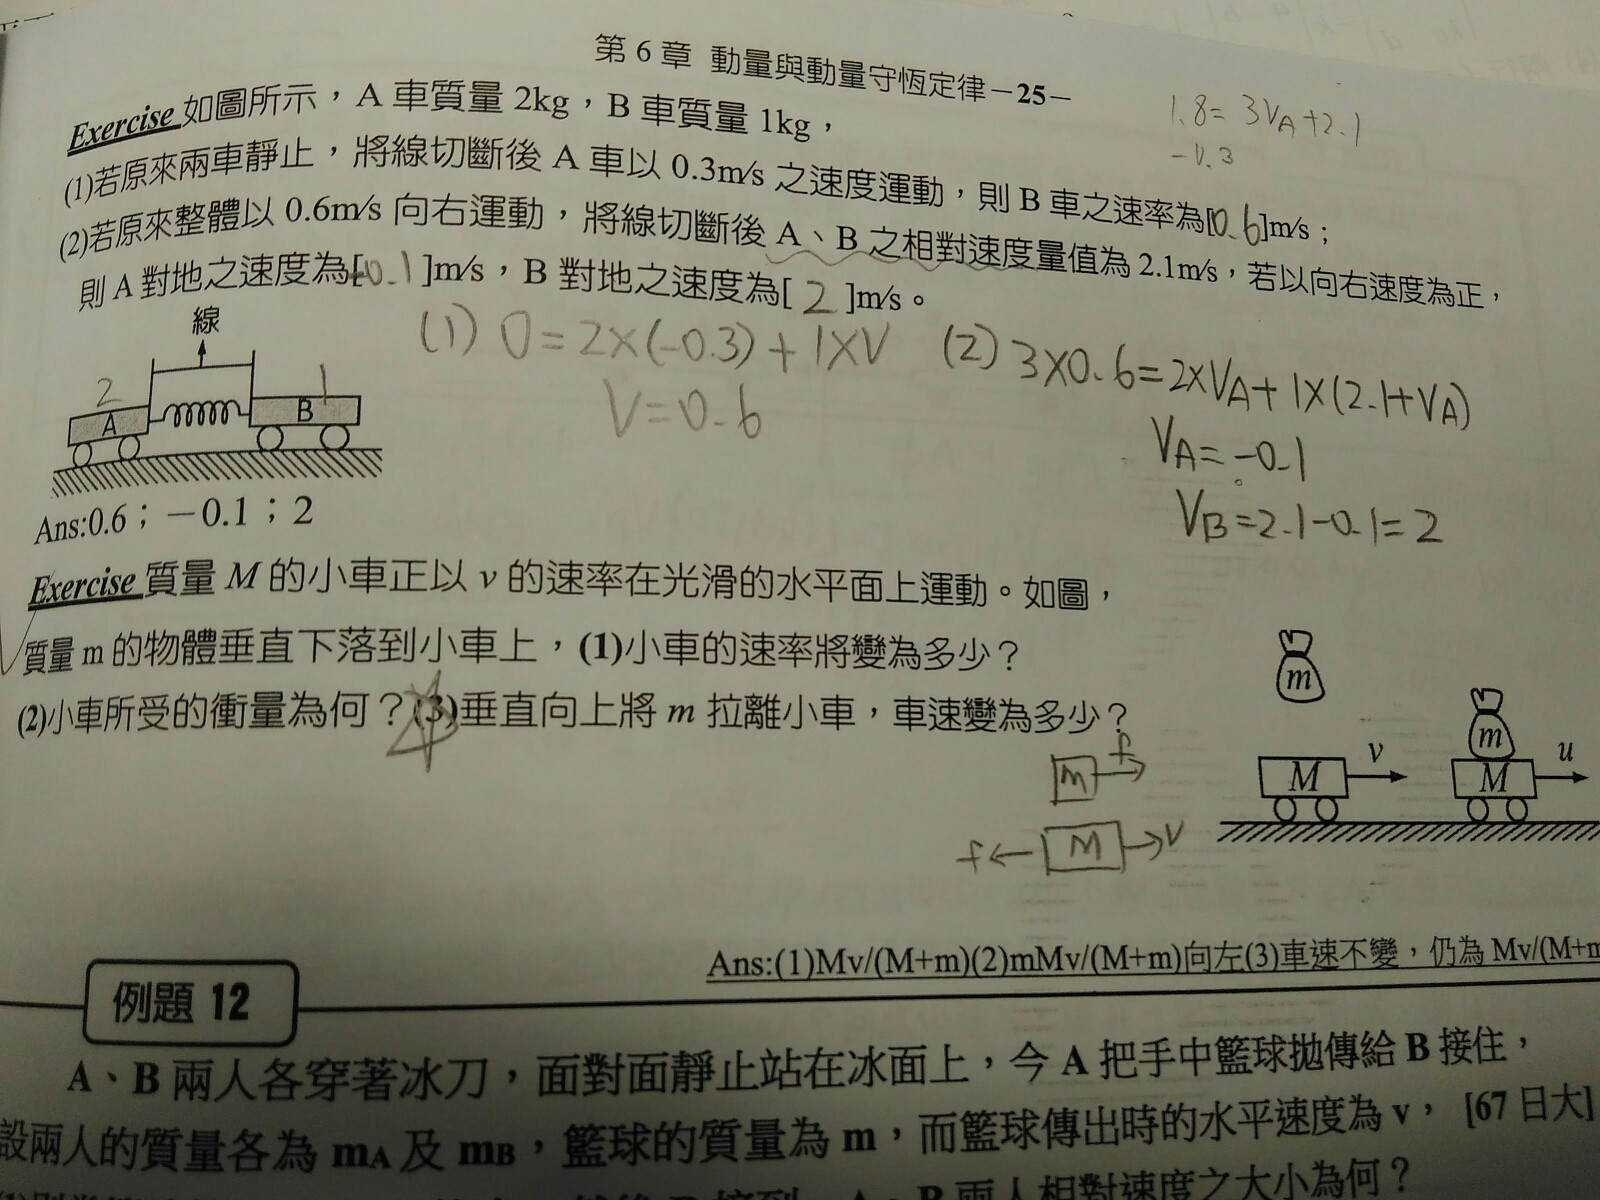 第 6 章 動量與動量守恆定律－25－
Exercise 如圖所示，A 車質量 2kg，B 車質量 1kg，
1.8= 3VA+2.1
(1)若原來兩車靜止，將線切斷後 A 車以 0.3m/s 之速度運動，則 B 車之速率為[0.6]m/s；
(2)若原來整體以 0.6m/s 向右運動，將線切斷後 A、B 之相對速度量值為 2.1m/s，若以向右速度為正，
則 A 對地之速度為[-0.1]m/s，B 對地之速度為[2]m/s。
線
(1) 0=2×(-0.3)+1×V
V=0.6
(2) 3×0.6=2×VA+1×(2.1+VA)
VA=-0.1
VB=2.1-0.1=2
2
1
A
B
Ans:0.6；－0.1；2
Exercise 質量 M 的小車正以 v 的速率在光滑的水平面上運動。如圖，
質量 m 的物體垂直下落到小車上，(1)小車的速率將變為多少？
(2)小車所受的衝量為何？(3)垂直向上將 m 拉離小車，車速變為多少？
m
m
M
v
M
u
m
f
f
M
V
Ans:(1)Mv/(M+m)(2)mMv/(M+m)向左(3)車速不變，仍為 Mv/(M+m
例題 12
A、B 兩人各穿著冰刀，面對面靜止站在冰面上，今 A 把手中籃球拋傳給 B 接住，
設兩人的質量各為 mA 及 mB，籃球的質量為 m，而籃球傳出時的水平速度為 v， [67 日大]
A、B 兩人相對速度之大小為何？